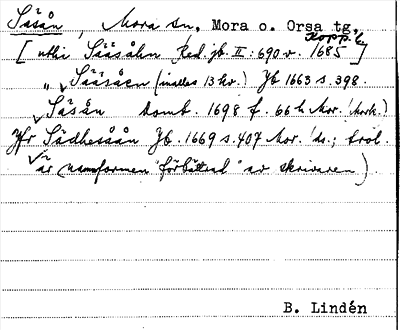 Såsån, Mora sn, Mora o. Orsa tg,
Kopp. l.
[uthi Sååsåhn Red. jb. II: 690 v. 1685]
" Sååsåen (inalles 13 hr.) Jb 1663 s. 398.
Såsån Domb. 1698 f. 66 h Mor.
Jfr Sådhesåån Jb. 1669 s. 407 Mor. ; trol.
är namnformen "förbättrad" av skrivaren)
B. Lindén